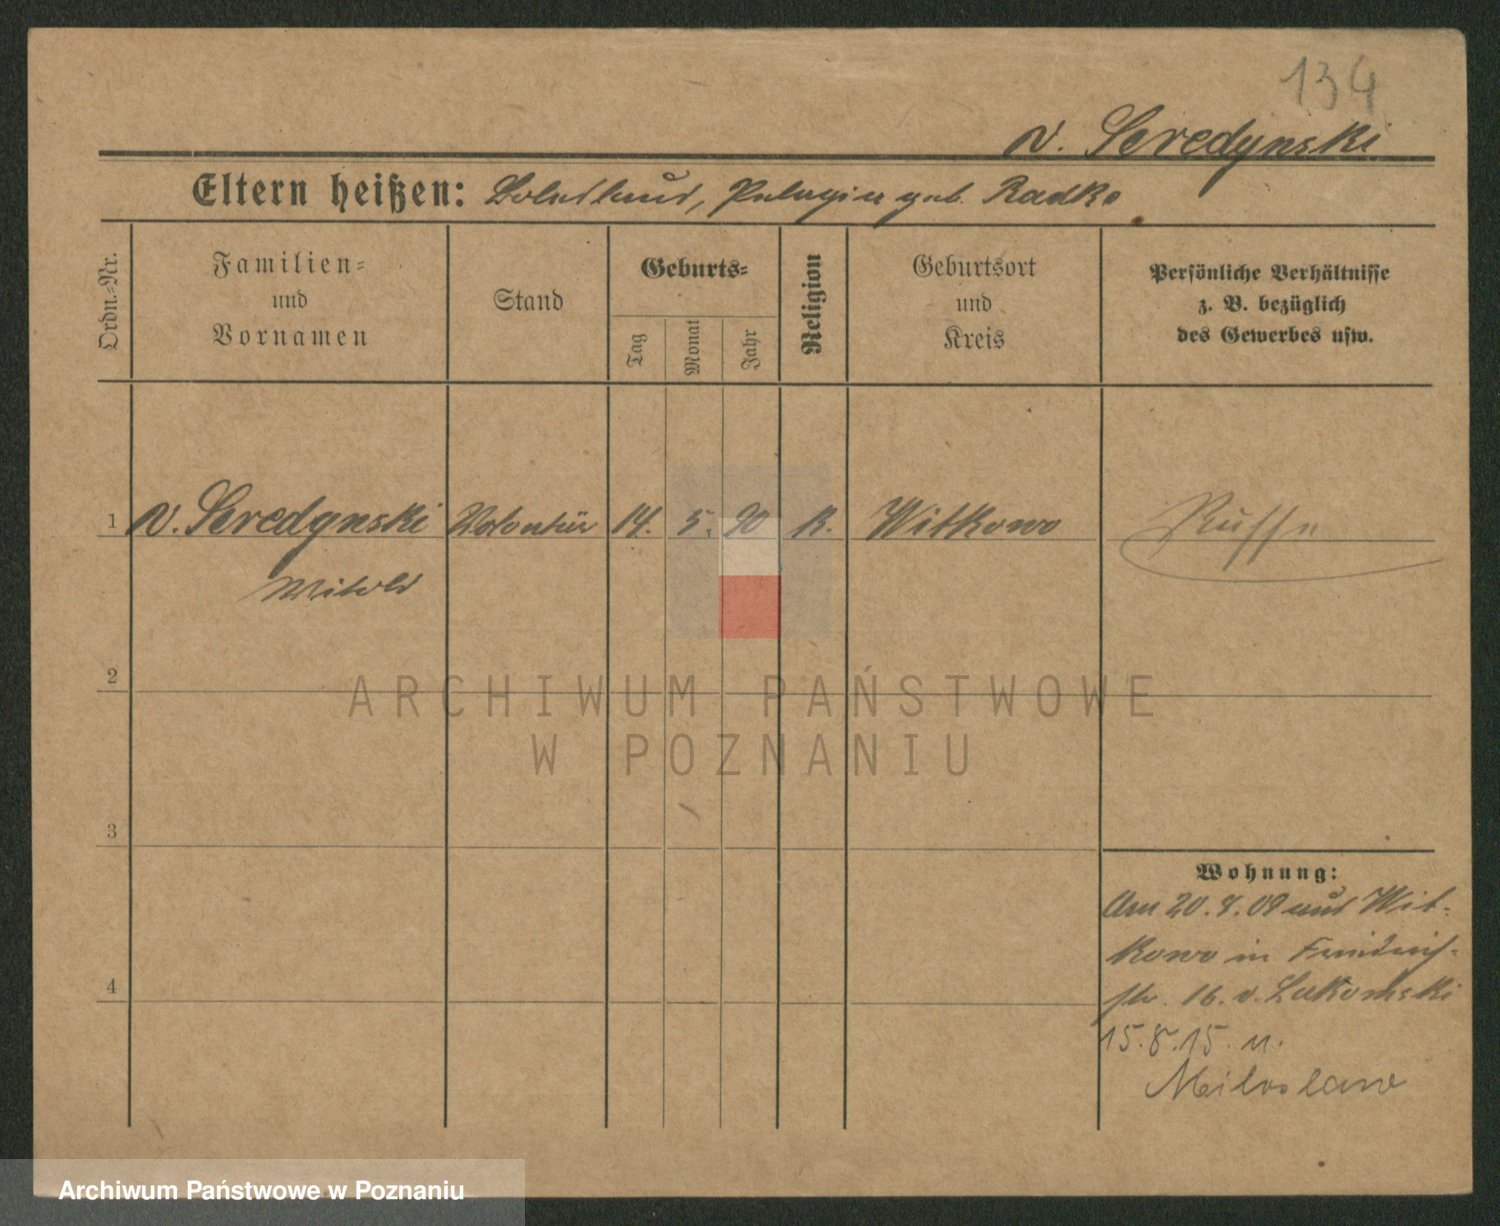 134
v. Seredynski
Eltern heißen: Boleslaus, Pelagia geb. Radko
Ordn.=Nr.
Familien=
und
Vornamen
Stand
Geburts=
Tag
Monat
Jahr
Religion
Geburtsort
und
Kreis
Persönliche Verhältnisse
z. B. bezüglich
des Gewerbes usw.
1 v. Seredynski Volontär 14. 5. 90 k. Witkowo Russe
Witold
2
ARCHIWUM PAŃSTWOWE
W POZNANIU
3
Wohnung:
Am 20.8.09 aus Wit-
kowo in
str. 16. v. Lakomski
4
15.8.15. n.
Miloslaw
Archiwum Państwowe w Poznaniu